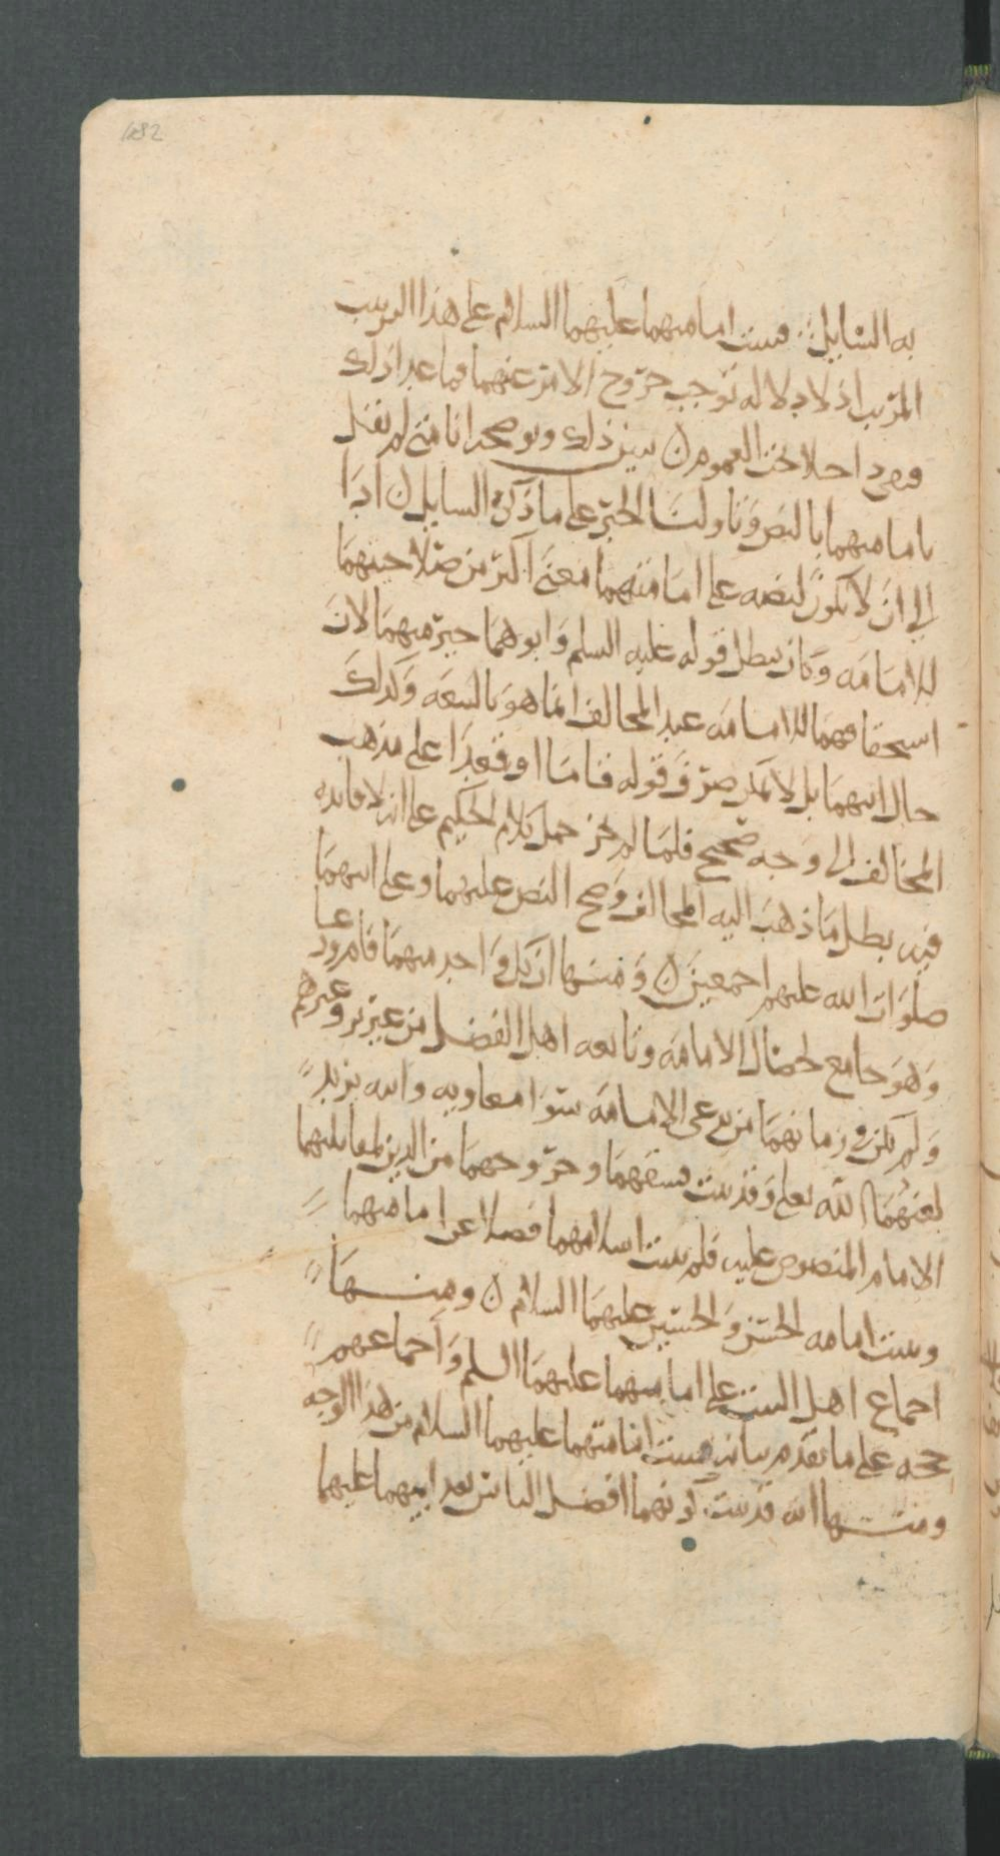 به السايل فىىت امامىهما عليهما السلام على هذا الترتيب
المرتب اذ لا دلاله توجب خروج الامر عنهما فيما عدا ذلك
احدلا تحت العموم ن يبين ذلك ويوضحه انا متى لم نقل
بامامتهما بالنص وتاولنا الخبر على ما ذكره السايل ن ادا
الى ان لا يكون لنصه على امامتهما معنى اكثر من صلاحيتهما
للامامه وكان يبطل قوله عليه السلم وابوهما خير منهما لان
استحقاقهما للامامه عند المخالف انما هو بالبيعه وكذلك
حال ابيهما بل لا يمكن صرف قوله قاما او قعدا على مذهب
المخالف الى وجه صحيح فلما لم يجز حمل كلام الحكيم على انه لا فايده
فيه بطل ما ذهب اليه المخالف وصح النص عليهما وعلى ابيهما
صلوات الله عليهم اجمعين ن ومنها ان كل واحد منهما قام ودعا
وهو جامع لخصال الامامه وتابعه اهل الفضل من عترته وغيرهم
ولم يكن في زمانهما من يدعى الامامه سوا معاويه وابنه يزيد
لعنهما الله تعلى وقد ثبت فسقهما وخروجهما من الدين لمقابلتهما
الامام المنصوص عليه فلم يثبت اسلامهما فضلا عن امامتهما
وثبتت امامه الحسن والحسين عليهما السلام ن ومنها
اجماع اهل البيت على امامتهما عليهما السلم واجماعهم
حجه على ما تقدم بيانه فثبتت امامتهما عليهما السلام من هذا الوجه
ومنها انه قد ثبت كونهما افضل الناس بعد ابيهما عليهما
182